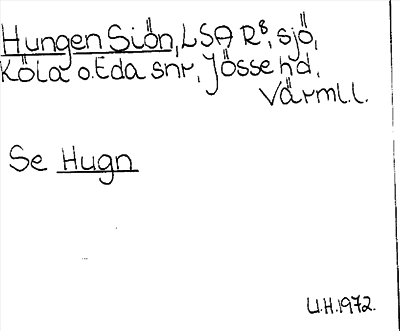 Hungen Siön, LSA R⁸, sjö,
Köla o. Eda snr, Jösse hd,
Värml.l.
Se Hugn
U.H.1972.